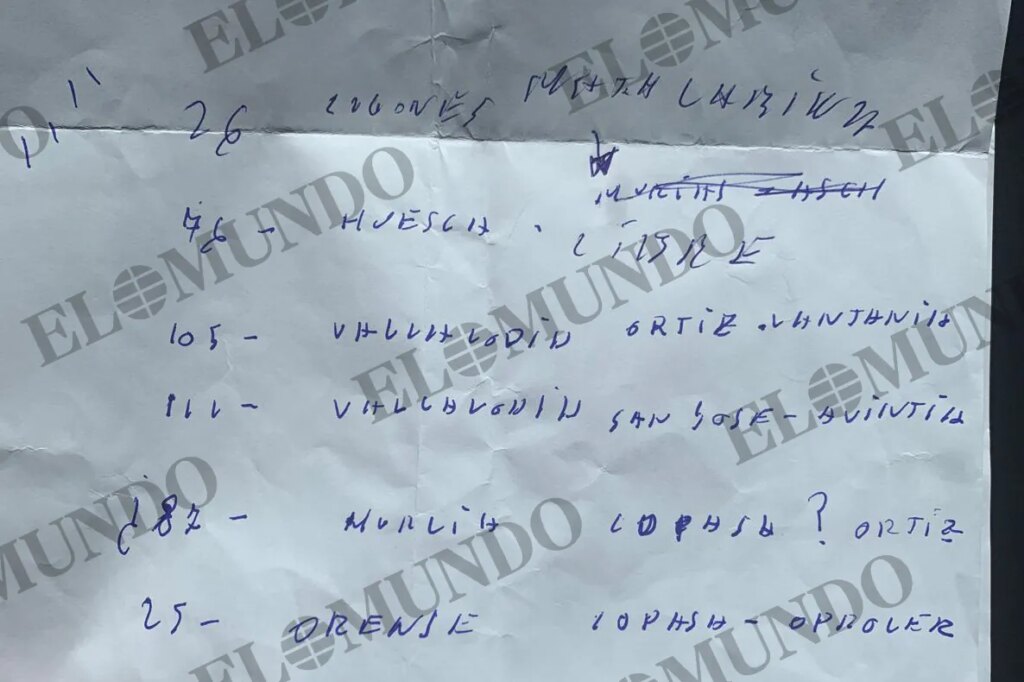 26 LUGONES SANTA LABINZ
MURIAS - ASCH
76 - HUESCA . LINSRE
105 - VALLALODID ORTIZ . VANTANIA
111 - VALLALODID SAN JOSE - AUINTIA
182 - MURCIA COPASA ? ORTIZ
25 - ORENSE COPASA - OPROLER
EL MUNDO
EL MUNDO
EL MUNDO
EL MUNDO
EL MUNDO
EL MUNDO
EL MUNDO
EL MUNDO